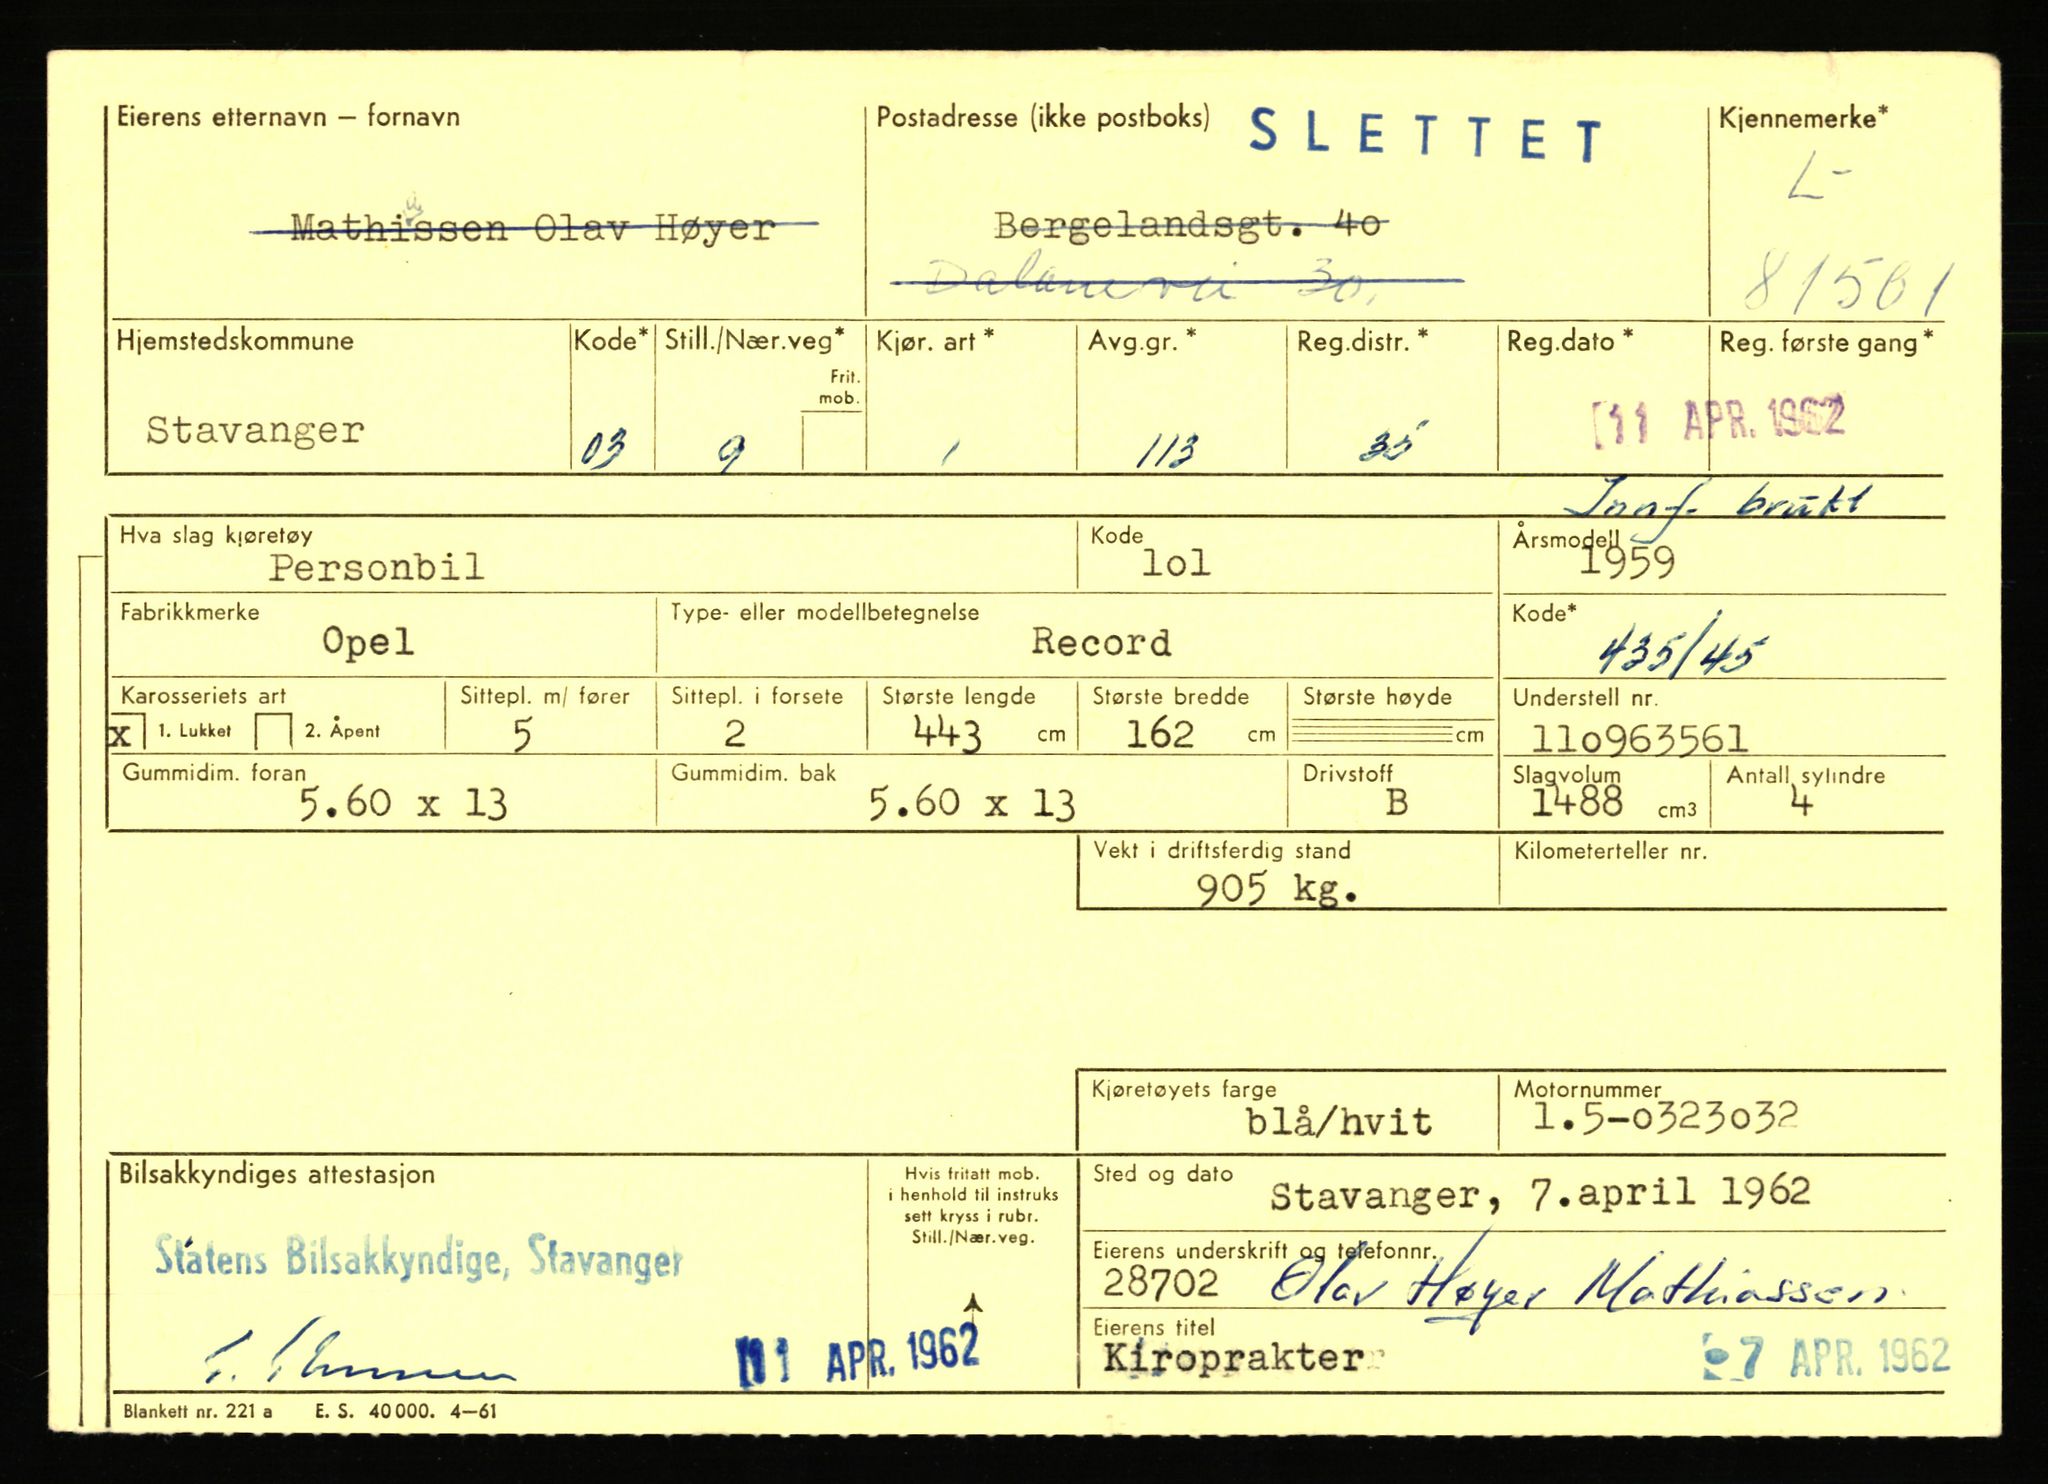 Eierens etternavn – fornavn
Postadresse (ikke postboks)
SLETTET
Kjennemerke*
L-
Mathissen Olav Høyer
Bergelandsgt. 4o
30.
81501
Hjemstedskommune
Kode*
Still./Nær.veg*
Frit. mob.
Kjør. art *
Avg.gr. *
Reg.distr. *
Reg.dato *
Reg. første gang *
Stavanger
03
9
1
113
35
11 APR. 1962
Innf. brukt
Hva slag kjøretøy
Personbil
Kode
lol
Årsmodell
1959
Fabrikkmerke
Opel
Type- eller modellbetegnelse
Record
Kode*
435/45
Karosseriets art
x 1. Lukket 2. Åpent
Sittepl. m/ fører
5
Sittepl. i forsete
2
Største lengde
443 cm
Største bredde
162 cm
Største høyde
cm
Understell nr.
11o963561
Gummidim. foran
5.60 x 13
Gummidim. bak
5.60 x 13
Drivstoff
B
Slagvolum
1488 cm3
Antall sylindre
4
Vekt i driftsferdig stand
905 kg.
Kilometerteller nr.
Kjøretøyets farge
blå/hvit
Motornummer
1.5-o323o32
Bilsakkyndiges attestasjon
Statens Bilsakkyndige, Stavanger
11 APR. 1962
Hvis fritatt mob.
i henhold til instruks
sett kryss i rubr.
Still./Nær.veg.
Sted og dato
Stavanger, 7.april 1962
Eierens underskrift og telefonnr.
28702 Olav Høyer Mathiassen.
Eierens titel
Kiroprakter
7 APR. 1962
Blankett nr. 221 a E. S. 40 000. 4–61